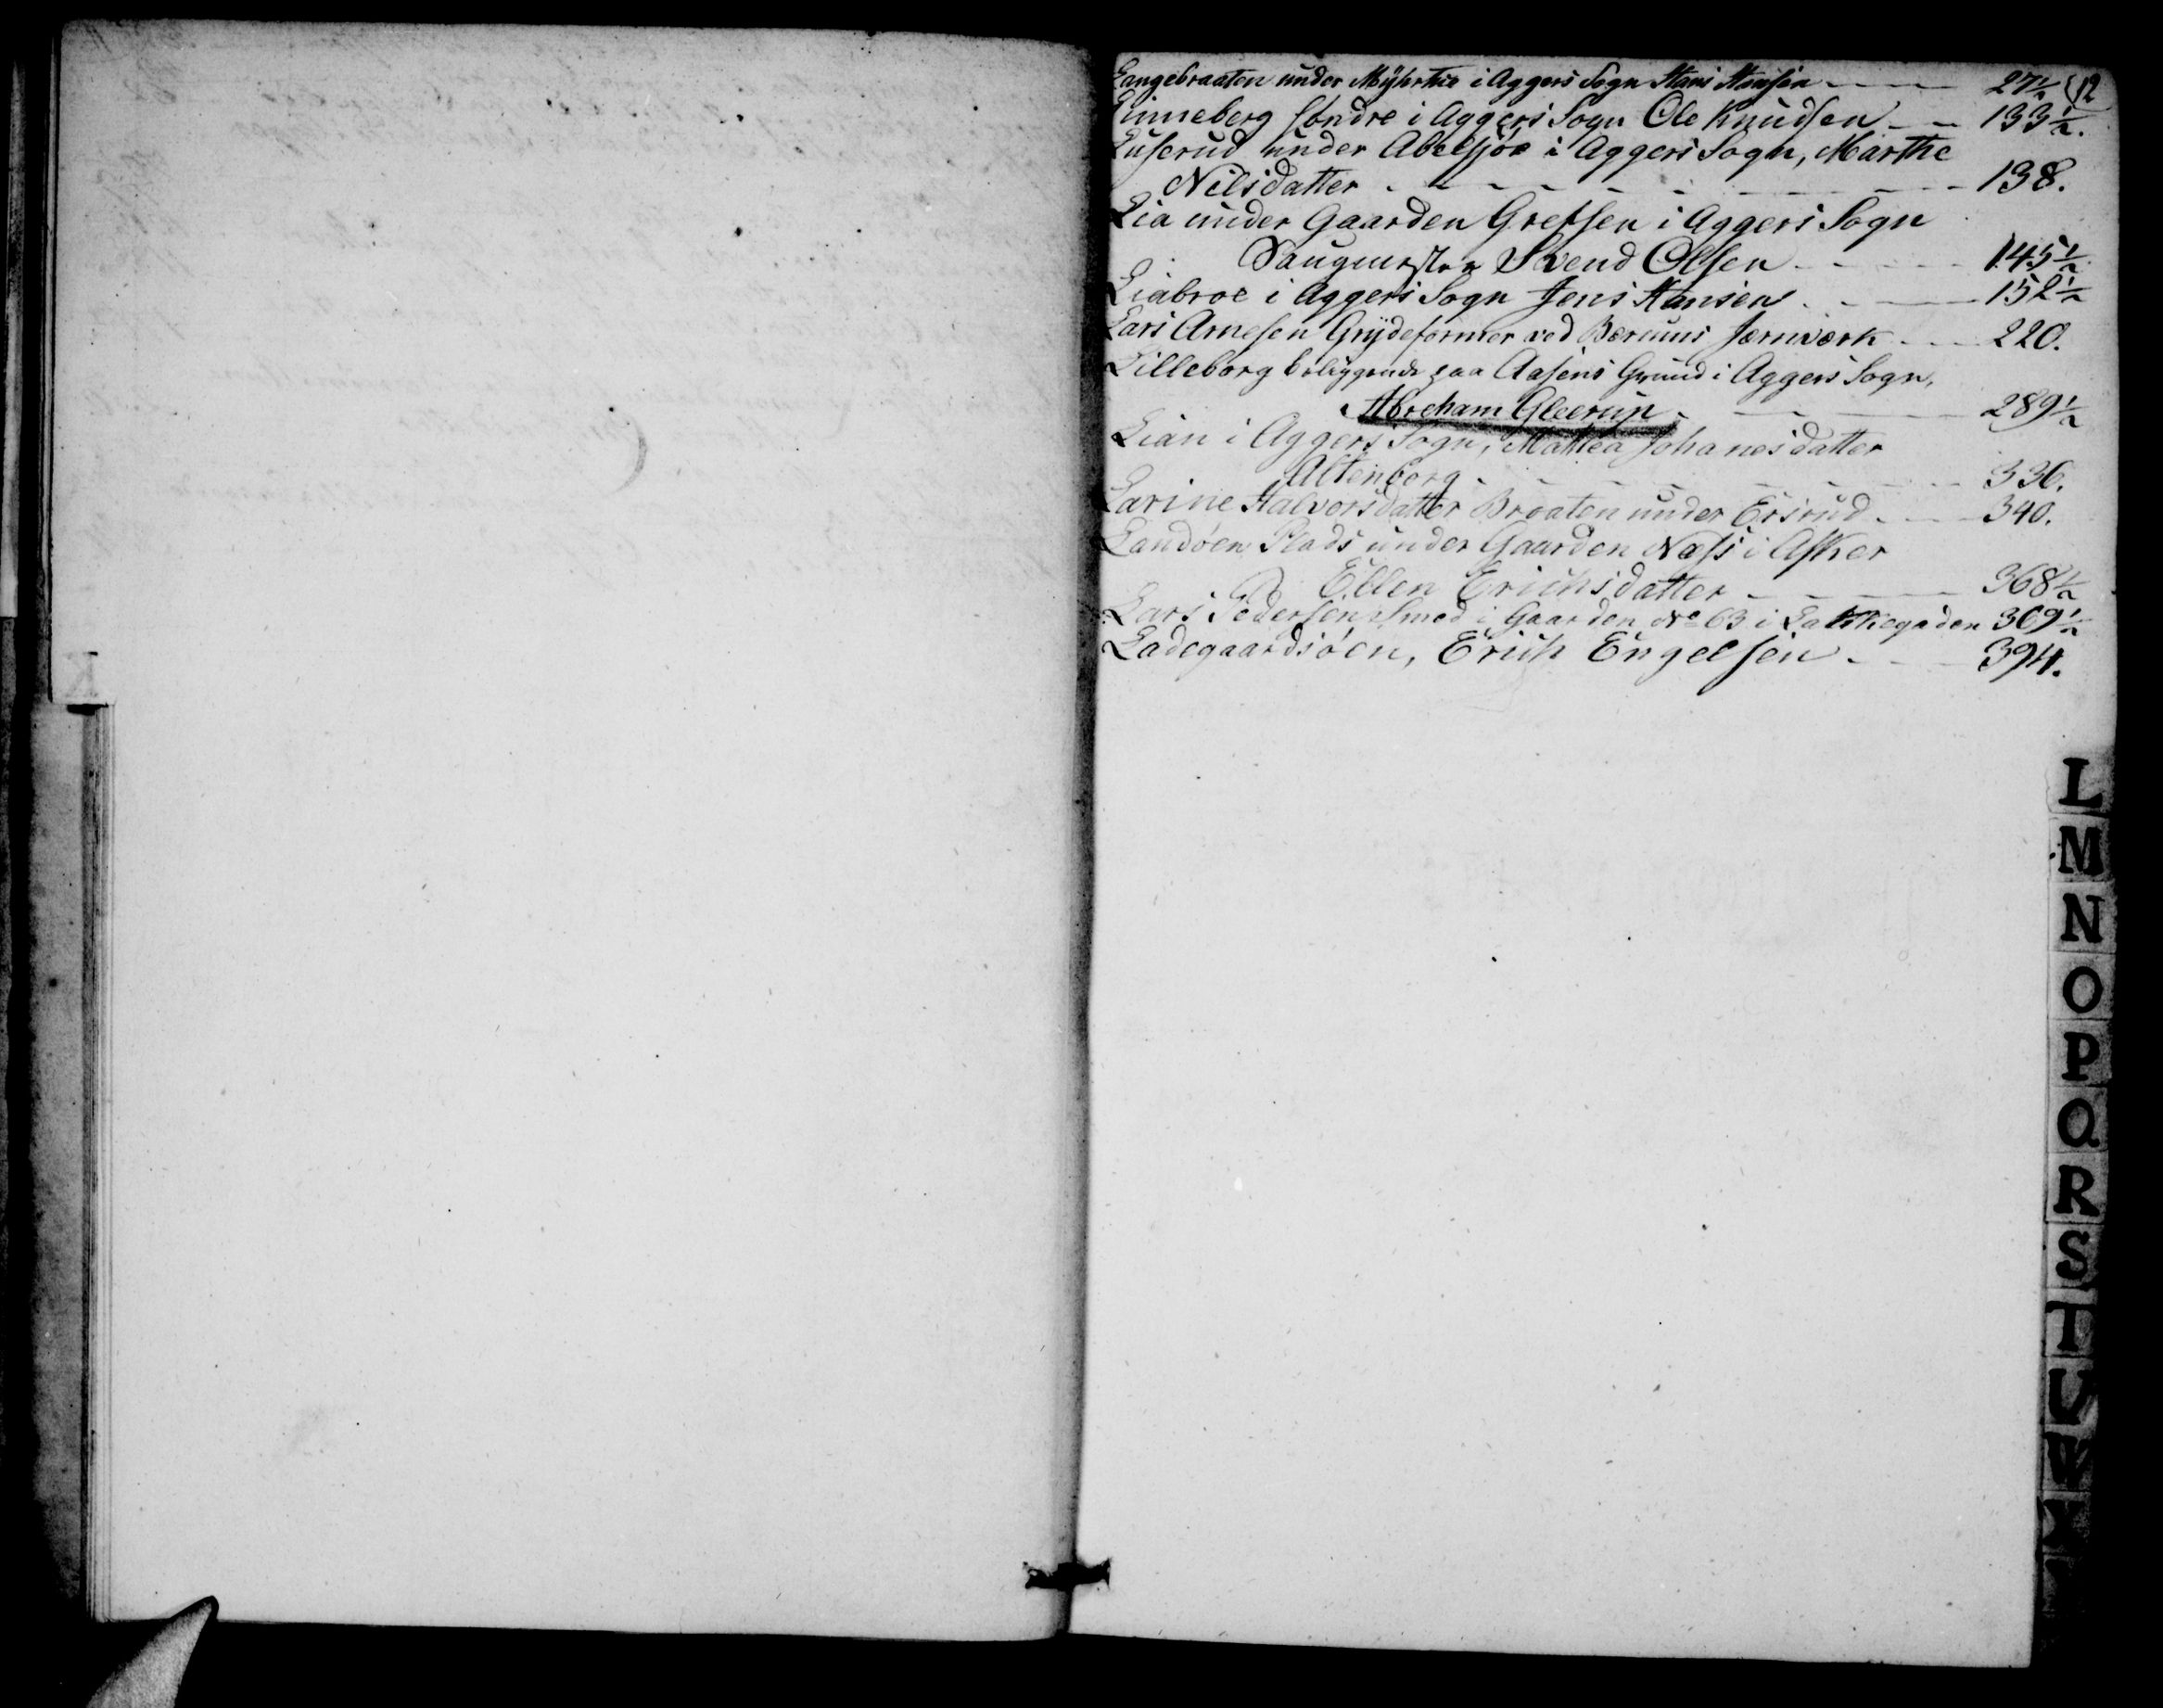 Langebraaten under Myhrtia i Aggers Sogn Hans Hansen - - - 27½ (12
Linneberg søndre i Aggers Sogn Ole Knudsen - - 133½.
Luserud under Abelsjøe i Aggers Sogn, Marthe
Nilsdatter - - - - - - - - 138.
Lia under Gaarden Grefsen i Aggers Sogn
Saugmester Svend Olsen - - - - 145½
Liabroe i Aggers Sogn Jens Hansen - - - 152½
Lars Arnesen Grydeformer ved Bærums Jernværk - - - 220.
Lilleborg beliggende paa Aasens Grund i Aggers Sogn,
Abraham Gleerup - - - 289½
Lian i Aggers Sogn, Mathea Johanesdatter
Altenborg - - - - - - - 336.
Larine Halvorsdatter Braaten under Ersrud - - - 340.
Landøen Plads under Gaarden Næss i Asker
Ellen Erichsdatter - - - - 368½
Lars Pedersen Smed i Gaarden No 63 i Lakkegaden 369½
Ladegaardsøen, Erich Engelsen - - - 394.
K
L
M
N
O
P
Q
R
S
T
U